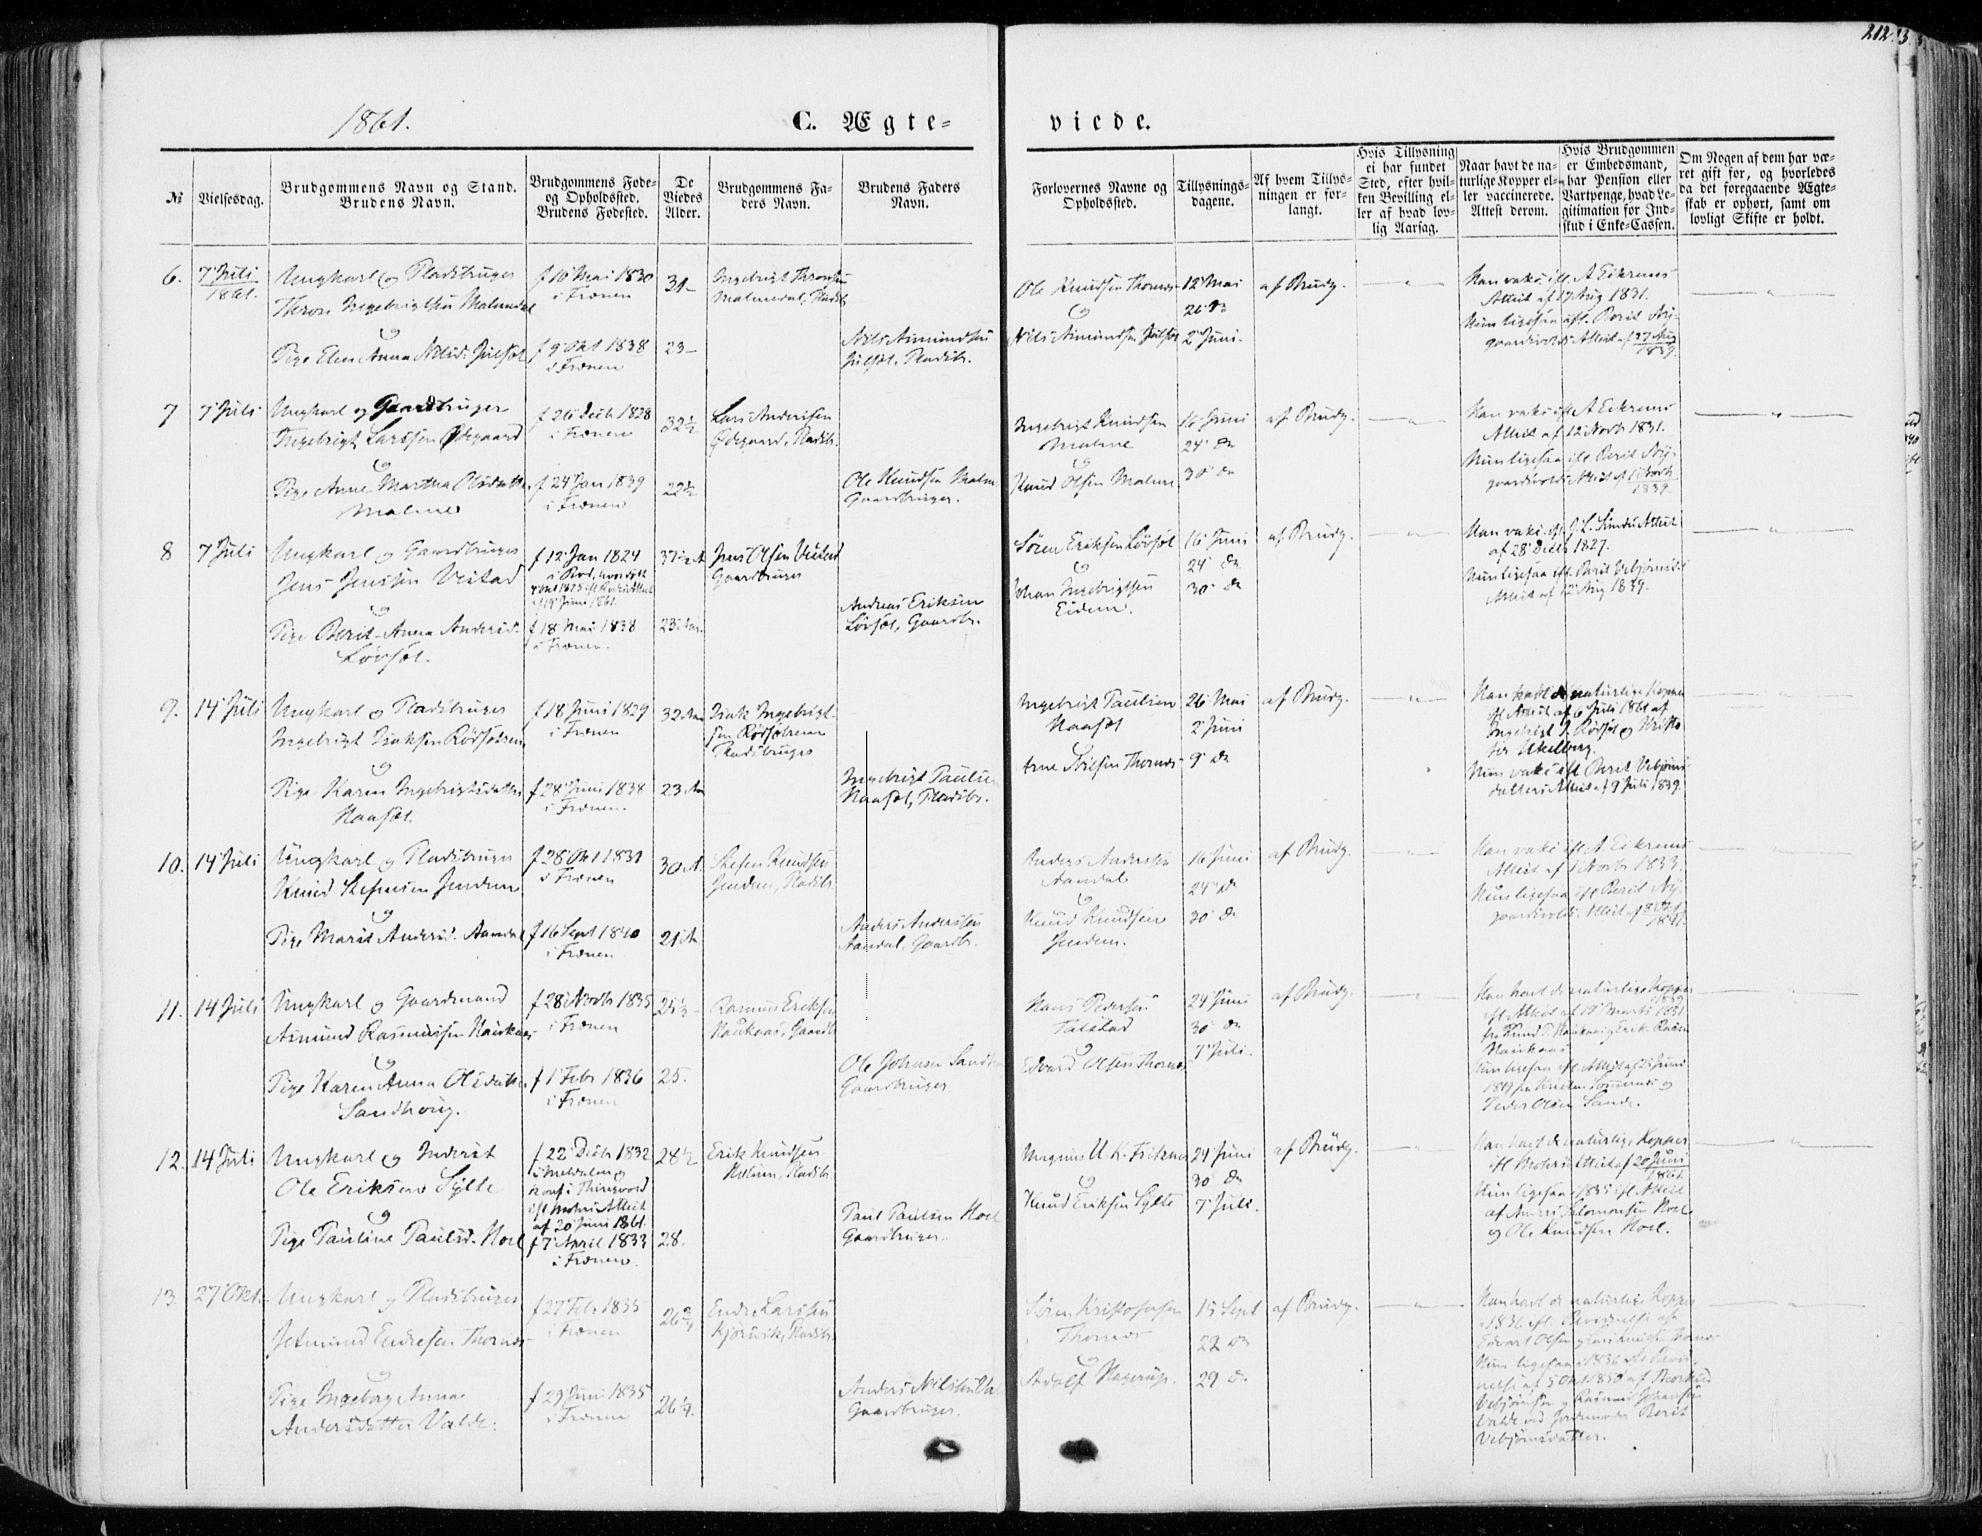 212.
1861.
C. Ægte-
viede.
№
Vielsesdag.
Brudgommens Navn og Stand.
Brudens Navn.
Brudgommens Føde-
og Opholdssted.
Brudens Fødested.
De
Viedes
Alder.
Brudgommens Fa-
ders Navn.
Brudens Faders
Navn.
Forlovernes Navne og
Opholdssted.
Tillysnings-
dagene.
Af hvem Tillys-
ningen er for-
langt.
Hvis Tillysning
ei har fundet
Sted, efter hvil-
ken Bevilling el-
ler af hvad lov-
lig Aarsag.
Naar havt de na-
turlige Kopper el-
ler vaccinerede.
Attest derom.
Hvis Brudgommen
er Embedsmand,
har Pension eller
Vartpenge, hvad Le-
gitimation for Ind-
skud i Enke-Cassen.
Om Nogen af dem har væ-
ret gift før, og hvorledes
da det foregaaende Ægte-
skab er ophørt, samt om
lovligt Skifte er holdt.
6.
7 Juli
1861.
Ungkarl og Pladsbruger
Thron Ingebrigtsen Malmedal
og
Pige Elen Anna Nilsd. Julset
f 10 Mai 1830
i Frænen
f 9 Okt 1838
i Frænen
31
23
Ingebrigt Thronsen
Malmedal, Pladsb.
Nils Amundsen
Julset, Pladsb.
Ole Knudsen Thornes
og
Nils Amundsen Julset
12 Mai
26 do
2 Juni
af Brudg.
Han vakc. ifl. A Eikrems
Attest af 17 Aug 1831.
Hun ligesaa ifl. Berit Ny-
gaardsvolds Attest af 27 Aug
1839.
7
7 Juli
Ungkarl og Gaardbruger
Ingebrigt Larssen Ødegaard
og
Pige Anne Martha Olsdatter
Malme
f 26 Decb 1828
i Frænen
f 24 Jan 1839
i Frænen
32½
22½
Lars Anderssen
Ødegaard, Pladsb.
Ole Knudsen Malme
Gaardbruger.
Ingebrigt Knudsen
Malme
og
Knud Olsen Malme
16 Juni
24 do
30 do
af Brudg.
Han vakc ifl. A Eikrems
Attest af 12 Novb 1831.
Hun ligesaa ifl Berit Ny-
gaardsvolds Attest af 1 Novb
1839.
8
7 Juli
Ungkarl og Gaardbruger
Jens Jenssen Veistad
og
Pige Berit Anna Andersd.
Løvset.
f 12 Jan 1824
i Bod, hvor døbt
af 19 Juni 1861.
f 18 Mai 1838
i Frænen.
37½ A
23 Aar
Jens Olsen Veistad
Gaardbruger
Andreas Eriksen
Løvset, Gaardb.
Søren Eriksen Løvset
og
Johan Ingebrigtsen
Eidem.
16 Juni
24 do
30 do
af Brudg.
Han vakc. ifl. J. L. Lindes Attest
af 28 Decb 1827.
Hun ligesaa ifl. Berit Vebjørnsd.
Attest af 12 Aug 1839.
9.
14 Juli
Ungkarl og Pladsbruger
Ingebrigt Isaksen Rødsetrem
og
Pige Karen Ingebrigtsdatter
Naaset.
f 18 Juni 1829
i Frænen
f 28 Juni 1838
i Frænen.
32 Aar
23 Aar
Isak Ingebrigt-
sen Rødsetrem
Pladsbruger
Ingebrigt Paulsen
Naaset, Pladsb.
Ingebrigt Paulsen
Naaset
Arne Nilsen Thornes
26 Mai
2 Juni
9 do
af Brudg.
Han havt de naturlige Kopper
ifl Attest af 6 Juli 1861 af
Ingebrigt J. Rødset og Kristo-
fer Ukelberg.
Hun vakc ifl Berit Vebjørns-
datters Attest af 9 Juli 1839.
10.
14 Juli
Ungkarl og Pladsbruger
Knud Stefensen Jendem
og
Pige Marit Andersd. Aandal
f 28 Okt 1831
i Frænen
f 16 Sept 1840
i Frænen
30 A.
21 A
Stefen Knudsen
Jendem, Pladsb.
Anders Anderssen
Aandal, Gaardb.
Anders Anderssen
Aandal
og
Knud Knudsen
Jendem.
16 Juni
24 do
30 do
af Brudg.
Han vakc ifl A Eikrems
Attest af 1 Novb 1833.
Hun ligesaa ifl Berit Ny-
gaardsvolds Attest af 8
1841.
11.
14 Juli
Ungkarl og Gaardmand
Asmund Rasmussen Haukaas
og
Pige Karen Anna Olsdatter
Sandhoug.
f 28 Novb 1835
i Frænen
f 1 Febr 1836
i Frænen
25½
25.
Rasmus Eriksen
Haukaas, Gaardb.
Ole Johnsen Sandh
Gaardbruger
Hans Pedersen
Talstad
og
Edvard Olsen Thornes
24 Juni
30 do
7 Juli.
af Brudg.
Han havt de naturlige Kopper
1839
ifl Attest af 10 Marts 1851
fra Knud T. Haukaas og Erik Rasm
Haukaas
Hun ligesaa ifl. Attest af 25 Juni
Peder Olsen Sande.
12.
14 Juli
Ungkarl og Inderst
Ole Eriksen Sylte
og
Pige Pauline Paulsd. Hoel
f 22 Decb 1832
i Meldalen og
Konf i Thingvold
ifl Mohrs Attest
af 20 Juni 1861.
f 7 April 1833
i Frænen.
28½
28.
Erik Knudsen
Holum, Pladsb.
Paul Paulsen Hoel
Gaardbruger.
Magnus U. K. Fritzner
og
Knud Eriksen Sylte
24 Juni
30 do
7 Juli.
af Brudg.
Han havt de naturlige Kopper
ifl Mohrs Attest af 20 Juni
1861.
Hun ligesaa 1835 ifl Attest
af Anders Salomonsen Hoel
og Ole Knudsen Hoel.
13.
27 Okt.
Ungkarl og Pladsbruger
Jetmund Endresen Thornes
Pige Ingeborg Anna
Andersdatter Valde.
f 27 Feb 1835
i Frænen
f 29 Juni 1835
i Frænen
26
26 ¼.
Endre Larssen
Kjørsvik, Pladsb.
Anders Nilssen Val
Gaardbruger.
Søren Kristofersen
Thornes
og
Adolf Hagerup.
15 Sept
22 do
29 do
af Brudg.
Han havt de naturlige Kopper
1836 ifl.
Edvart Olsen
Hun ligesaa 1836
af 5 Okt 1850 af
Vebjørnsen og Rasmus
Valde ved Jordemoder Berit
Vebjørnsdatter.